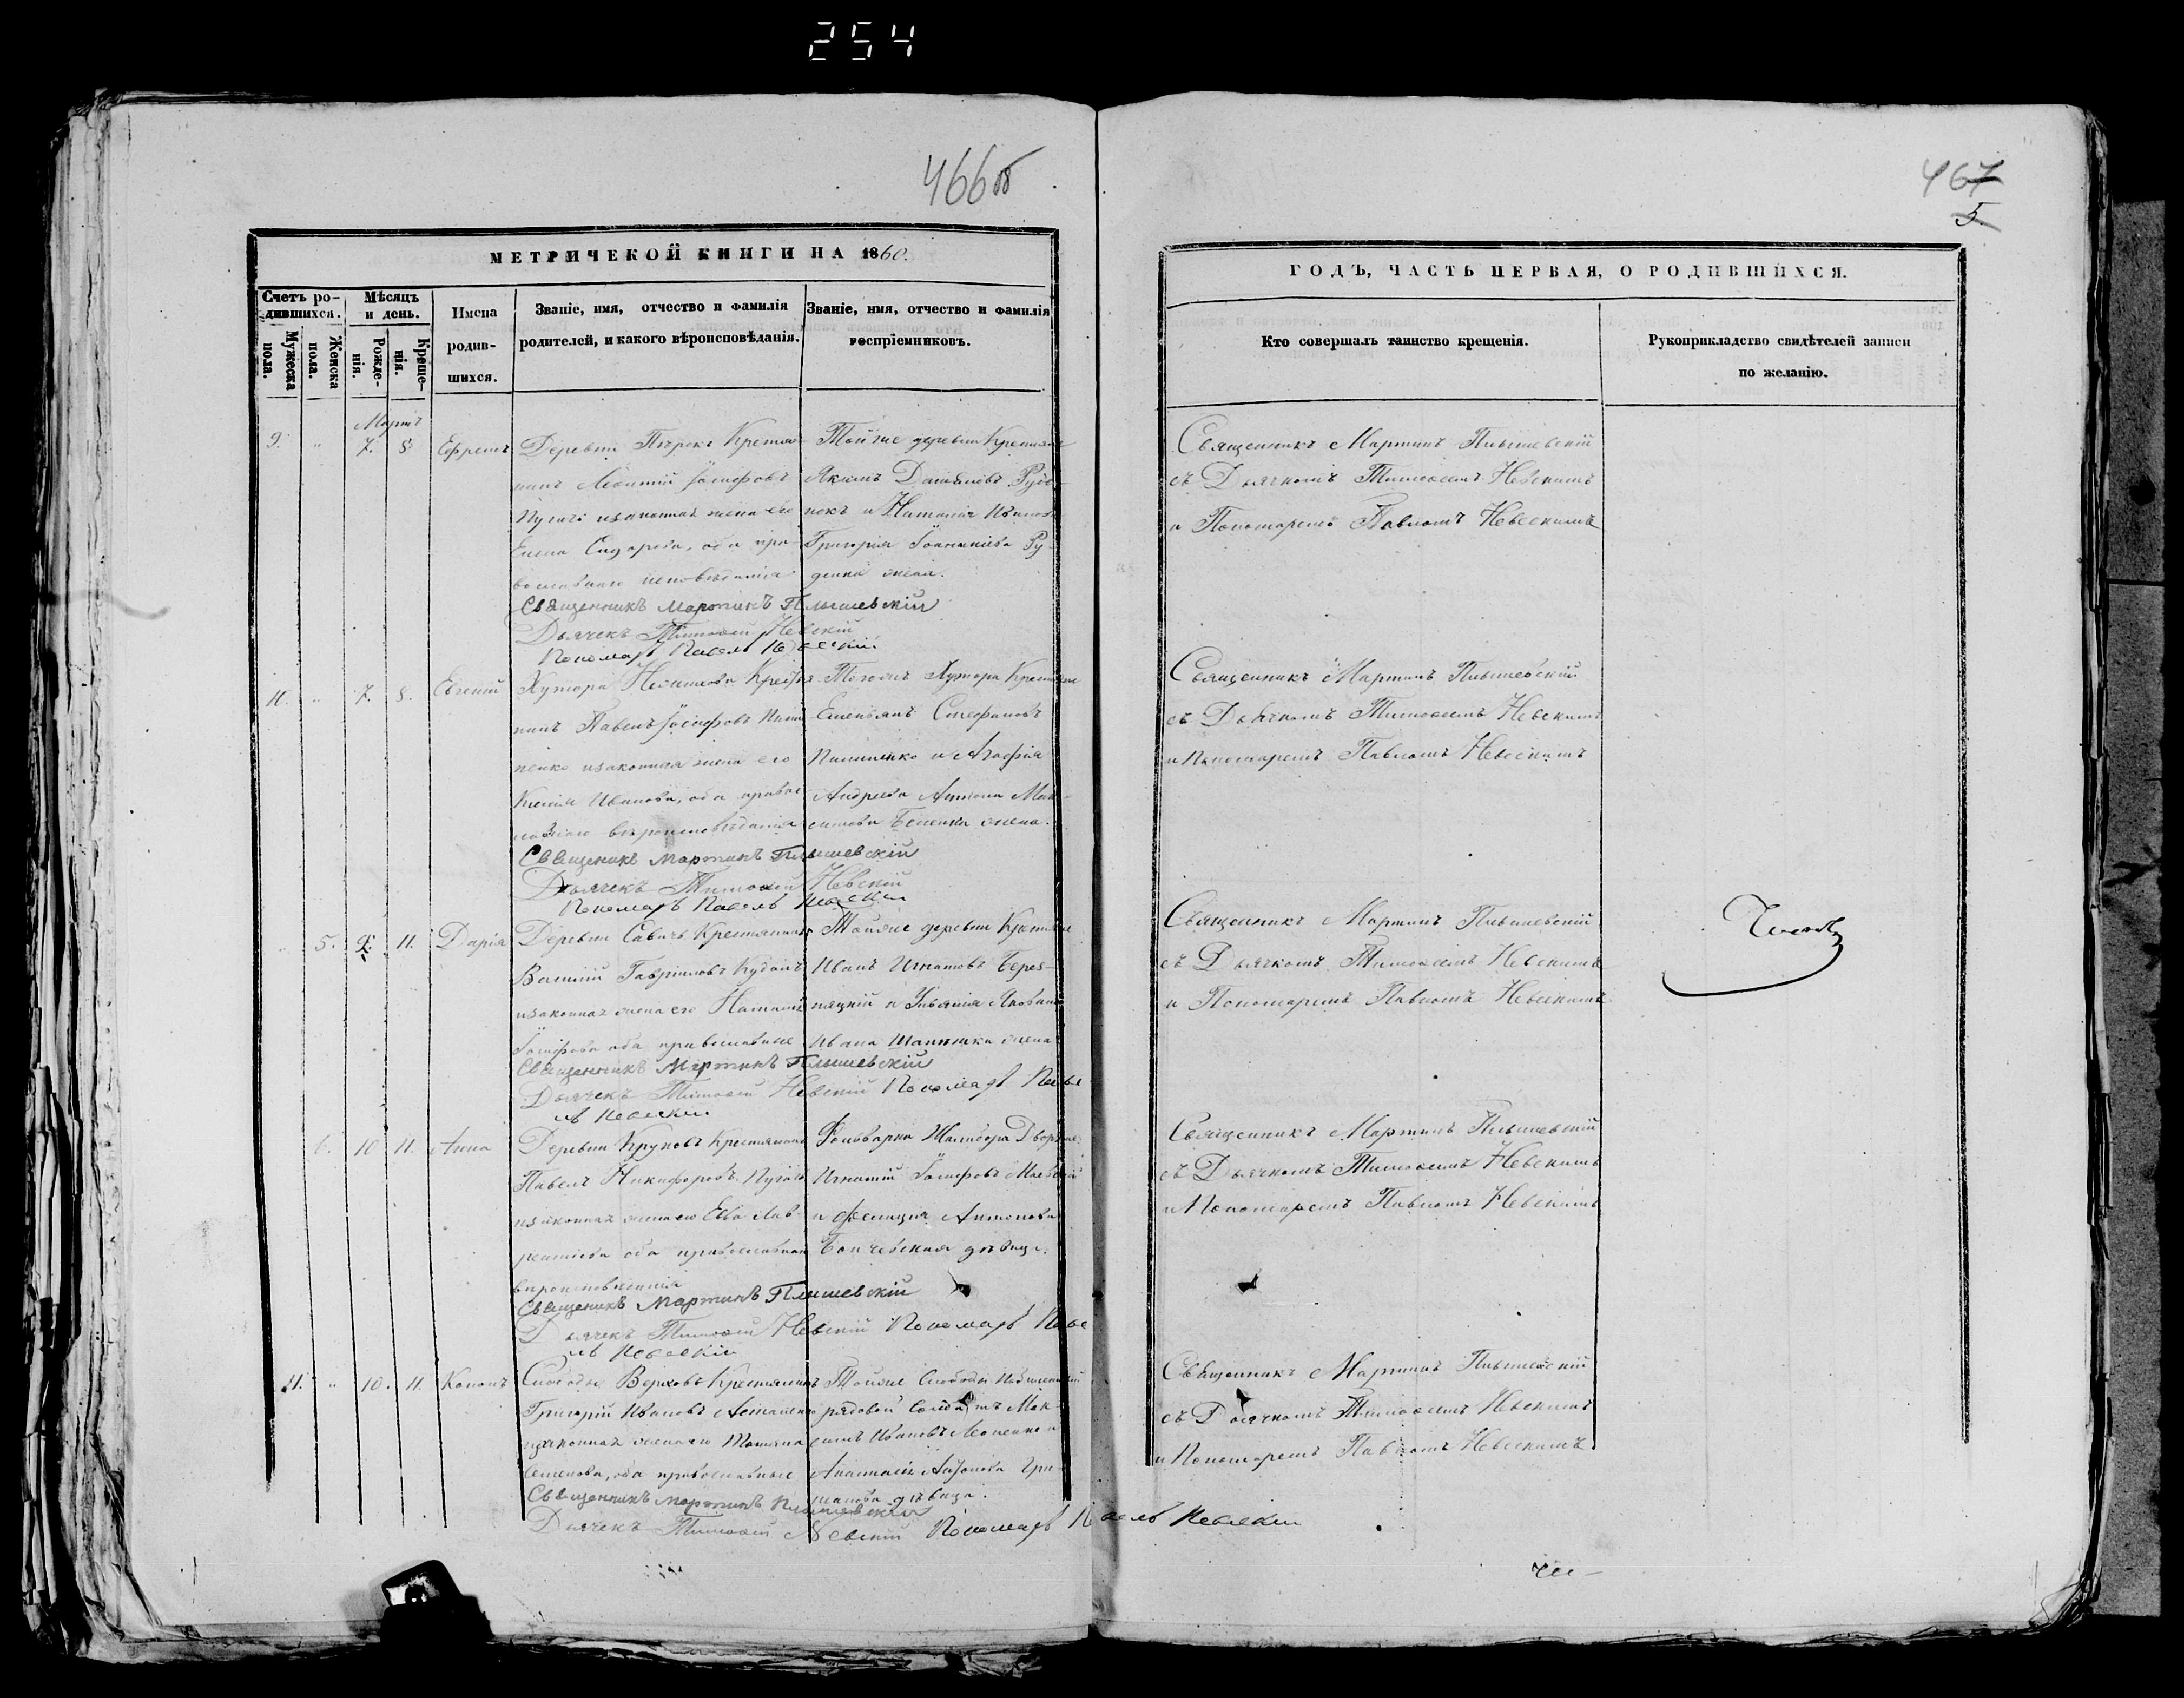 254
466 об
467
5
МЕТРИЧЕКОЙ КНИГИ НА 1860.
ГОДЪ, ЧАСТЬ ПЕРВАЯ, О РОДИВШИХСЯ.
Счетъ ро-
дившихся.
Мужеска
пола.
Женска
пола.
Мѣсяцъ
и день.
Рожде-
нія.
Креще-
нія.
Имена
родив-
шихся.
Званіе, имя, отчество и фамилія
родителей, и какого вѣроисповѣданія.
Званіе, имя, отчество и фамилія
воспріемниковъ.
Кто совершалъ таинство крещенія.
Рукоприкладство свидѣтелей записи
по желанію.
Мартъ
9. " 7. 8 Ефремъ
Деревни Крестья-
нинъ Леонтій Іосифовъ
законная жена его
Елена оба пра-
вославнаго исповѣданія
Священникъ Мартинъ Плышевскій
Дьячекъ Тимофей Невскій
Пономарь Павелъ Невскій
Тойже деревни Крестьяне
Якимъ Руде-
нокъ и Наталія Иванова
Григорія Ру-
денка жена.
Священникъ Мартинъ Плышевскій
съ Дьячкомъ Тимофеемъ Невскимъ
и Пономаремъ Павломъ Невскимъ
" 7. 8. Евгеній
Хутора Крестья
нинъ Павелъ Іосифовъ Пили
пенко изаконная жена его
Ксенія Иванова, оба правос
лавнаго вѣроисповѣданія
Священикъ Мартинъ Плышевскій
Дьячекъ Тимофей Невскій
Пономарь Павелъ Невскій
Тогожъ Хутора Крестьяне
Емельянъ Стефановъ
Пилипенко и Агафія
Андреева Антона Мак-
симова Беленка жена.
Священникъ Мартинъ Плышевскій
съ Дьячкомъ Тимофеемъ Невскимъ
и Пономаремъ Павломъ Невскимъ
5. 11. Дарія
Деревни Савичъ Крестьянинъ
Василій Гавріиловъ
изаконная жена его Наталія
Іосифова оба православные
Священникъ Мартинъ Плышевскій
Дьячекъ Тимофей Невскій Пономарь Паве
лъ Невскій
Тойже деревни Крестьяне
Иванъ Игнатовъ Берез-
няцкій и Ульянія Яковлева
Ивана жена
Священникъ Мартинъ Плышевскій
съ Дьячкомъ Тимофеемъ Невскимъ
и Пономаремъ Павломъ Невскимъ
6. 10 11. Анна
Деревни Круковъ Крестьянинъ
Павелъ Никифоровъ
изаконная жена его Ева Лав-
рентіева оба православнаго
вѣроисповѣданія
Священикъ Мартинъ Плышевскій
Дьячекъ Тимофей Невскій Пономарь Паве
лъ Невскій
Фольварка Дворяне
Игнатій Іосифовъ Маевскій
и Фелиція Антонова
дѣвица.
Священникъ Мартинъ Плышевскій
съ Дьячкомъ Тимофеемъ Невскимъ
и Пономаремъ Павломъ Невскимъ
11. " 10. 11. Кононъ
Слободы Верховъ Крестьянинъ
Григорій Ивановъ
изаконная жена его Татьяна
Семенова, оба православные
Священникъ Мартинъ Плышевскій
Дьячекъ Тимофей Невскій Пономарь Павелъ Невскій
Тойже Слободы
рядовой Солдатъ Мак-
симъ Ивановъ и
Анастасія
дѣвица.
Священникъ Мартинъ Плышевскій
съ Дьячкомъ Тимофеемъ Невскимъ
и Пономаремъ Павломъ Невскимъ